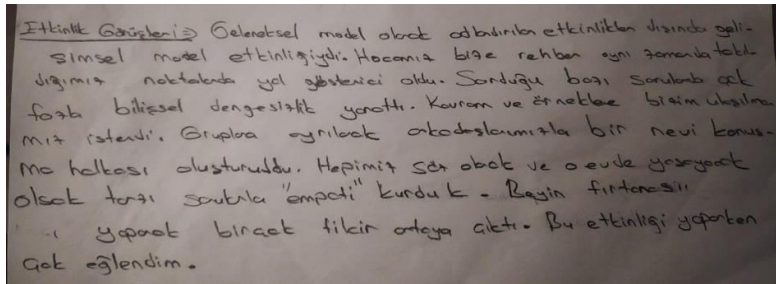 Etkinlik Görüşleri => Geleneksel model olarak adlandırılan etkinlikten dışında geli-
şimsel model etkinliğiydi. Hocamız bize rehber aynı zamanda takıl-
dığımız noktalarda yol gösterici oldu. Sorduğu bazı sorularla çok
fazla bilişsel dengesizlik yarattı. Kavram ve örneklere bizim ulaşılma
mız istendi. Gruplara ayrılarak arkadaşlarımızla bir nevi konuş-
ma halkası oluşturuldu. Hepimiz olarak ve o evde yaşayacak
olsak tarzı "empati" kurduk. Beyin fırtınası
yaparak birçok fikir ortaya çıktı. Bu etkinliği yaparken
Çok eğlendim.